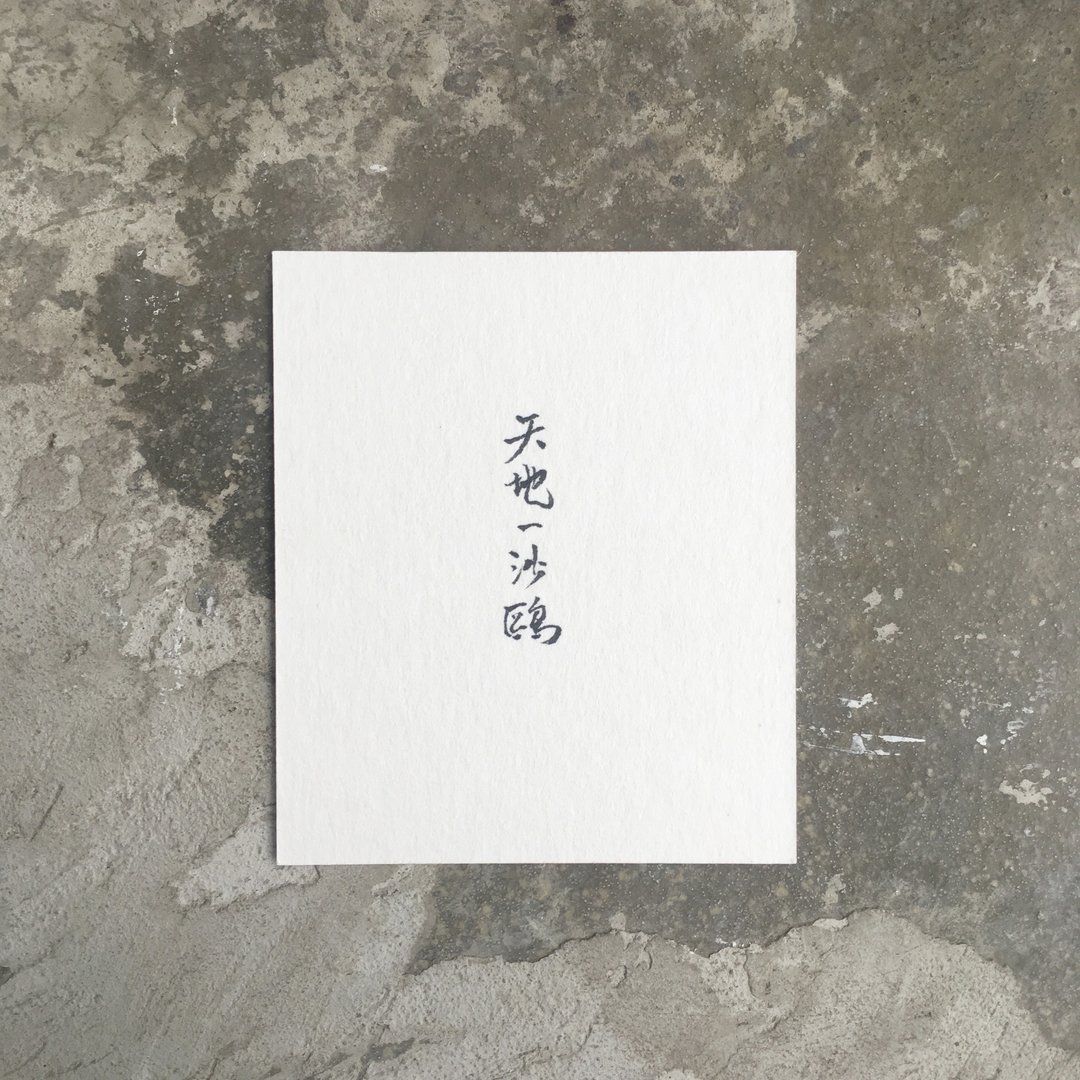 天地一沙鷗